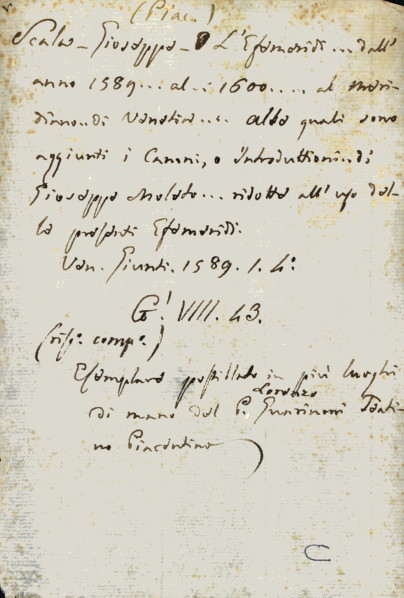 (Piac.)
Scala - Giuseppe - L'Efemeridi... dall'
anno 1589... al... 1600.... al meri-
diano di Venetia.... alle quali sono
aggiunti i Canoni, o Introduttioni di
Gioseppe Moleto... ridotte all'uso del-
le presenti Efemeridi.
Ven. Giunti. 1589. 1. 4º
G! VIII. 43.
(risp. comp.)
Esemplare postillato in più luoghi
Lorenzo
di mano del P. Guarinoni Teati-
no Piacentino
C